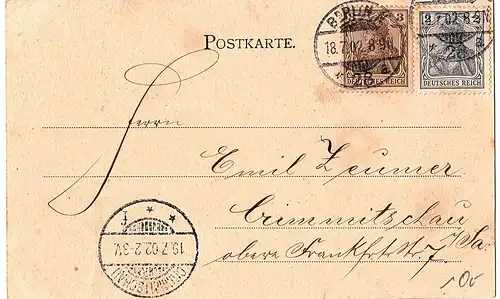 POSTKARTE.
BERLIN
18.7.02 8-9N.
3
DEUTSCHES REICH
2
7.02 8-9N.
DEUTSCHES REICH
Herrn
Emil Zeumer
Crimmitschau
obere Frankfrtstr. 7 /Sa.
19.7.02.2-3V.